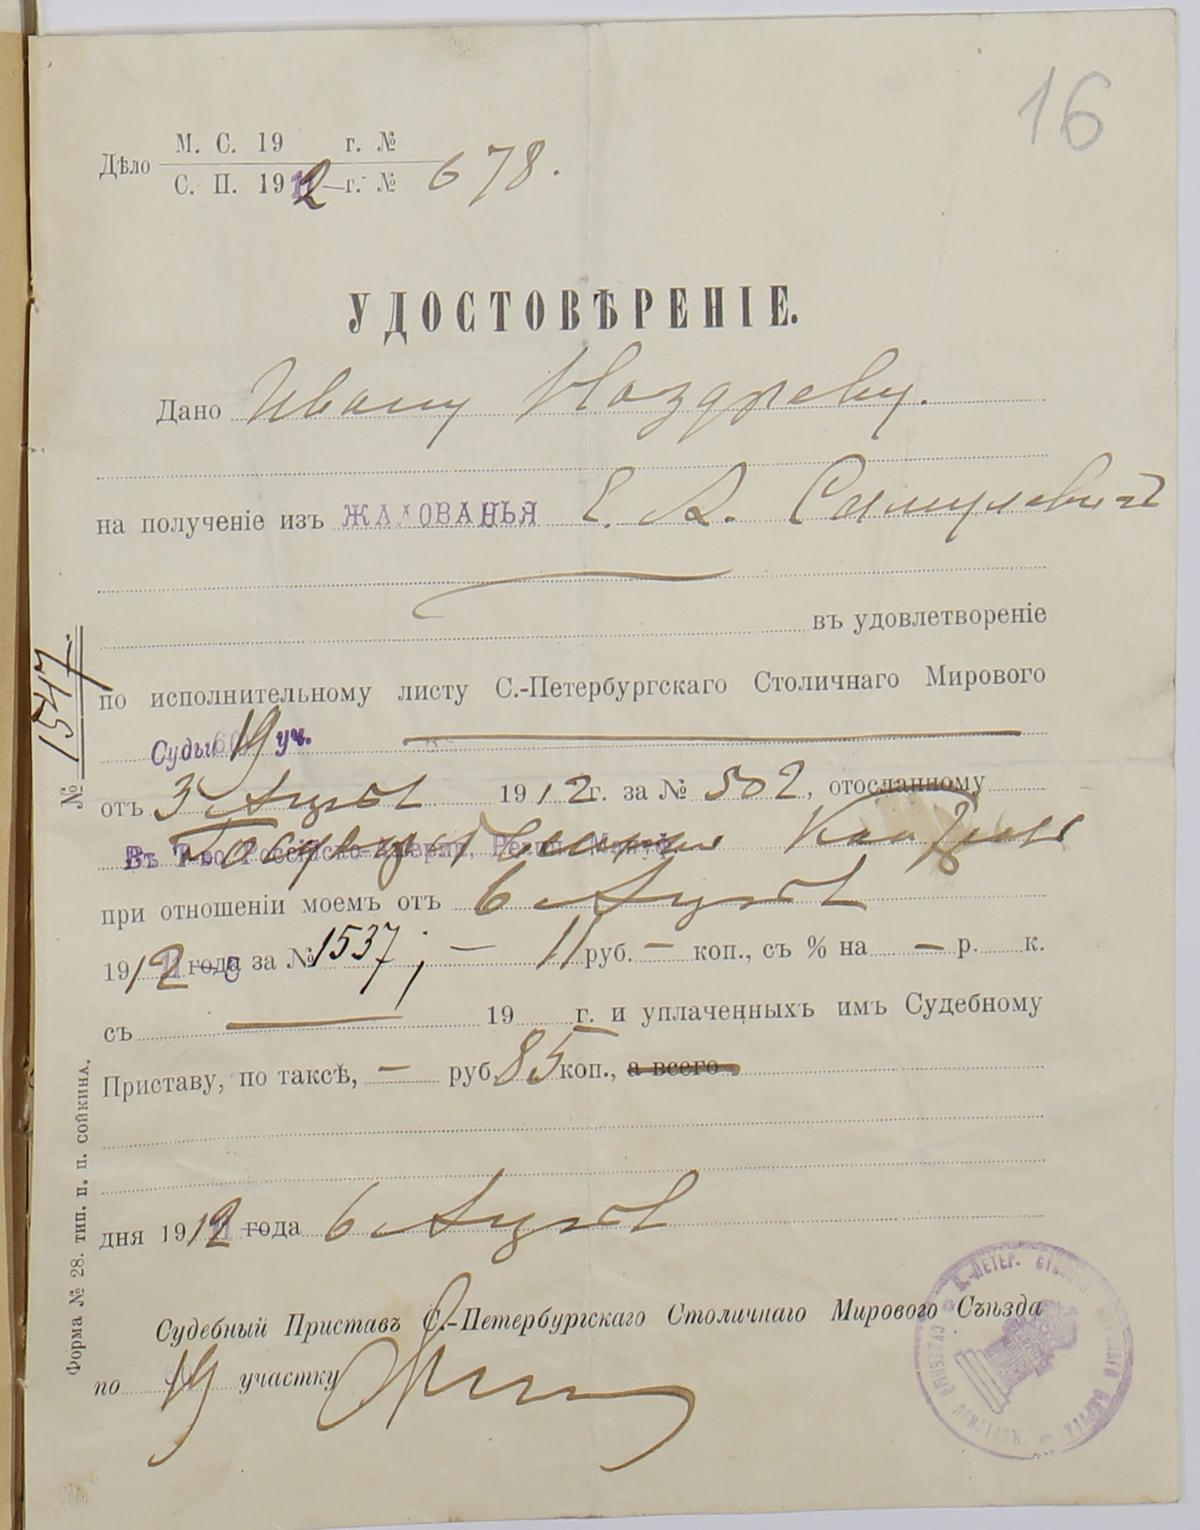 16
Дѣло М. С. 19 г. №
С. П. 1912 г. № 678.
УДОСТОВѢРЕНІЕ.
Дано Ивану Ноздреву.
на полученіе изъ ЖАЛОВАНЬЯ Е. А. Самулевичъ
въ удовлетвореніе
по исполнительному листу С.-Петербургскаго Столичнаго Мирового
Судьи 19 уч.
отъ 3 Августа 1912 г. за № 502, отосланному
въ Государственную Контроль
при отношеніи моемъ отъ 6 Августа
1912 года за № 1537; — 11 руб. — коп., съ % на — р. к.
съ 19 г. и уплаченныхъ имъ Судебному
Приставу, по таксѣ, — руб. 85 коп., а всего
дня 1912 года 6 Августа
Судебный Приставъ С.-Петербургскаго Столичнаго Мирового Съѣзда
по 19 участку
№ 1547.
Форма № 28. тип. п. п. сойкина.